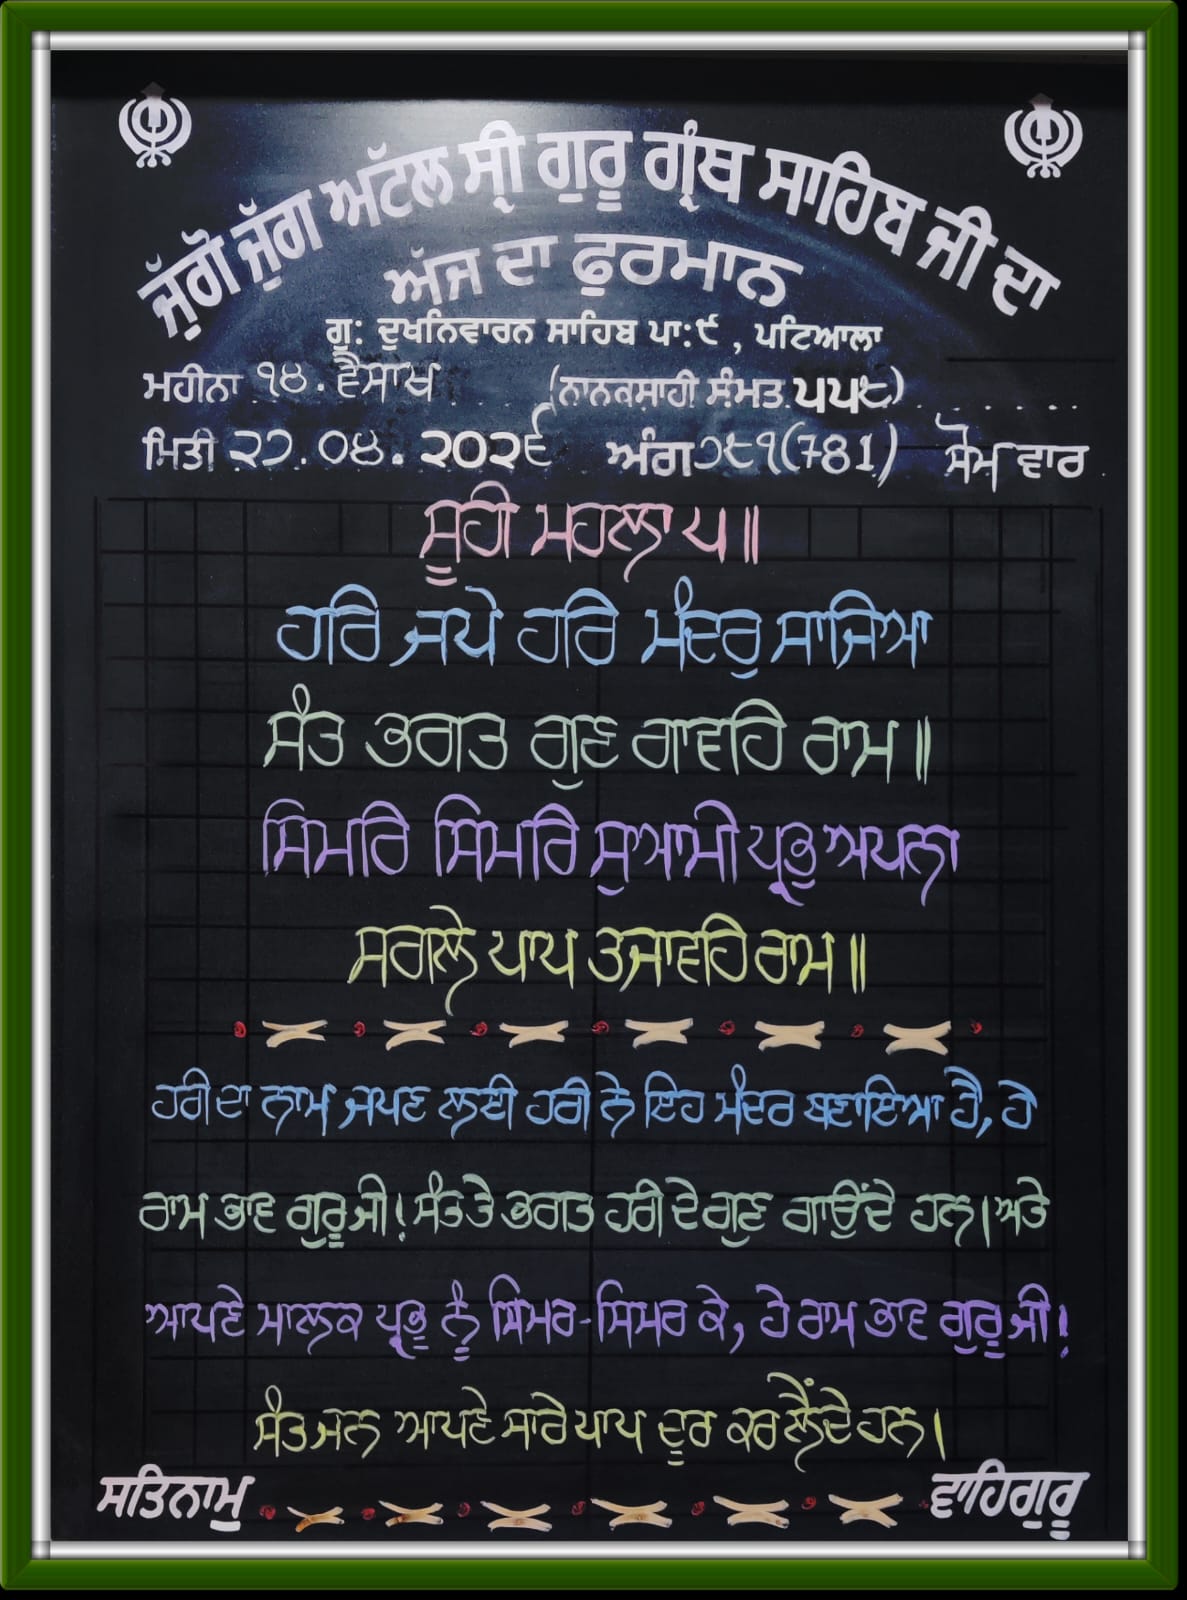 ਜੁੱਗੋ ਜੁੱਗ ਅਟੱਲ ਸ੍ਰੀ ਗੁਰੂ ਗ੍ਰੰਥ ਸਾਹਿਬ ਜੀ ਦਾ
ਅੱਜ ਦਾ ਫੁਰਮਾਨ
ਗੁ: ਦੁਖਨਿਵਾਰਨ ਸਾਹਿਬ ਪਾ:੯, ਪਟਿਆਲਾ
ਮਹੀਨਾ ੧੪. ਵੈਸਾਖ (ਨਾਨਕਸਾਹੀ ਸੰਮਤ ੫੫੮)
ਮਿਤੀ ੨੭.੦੪.੨੦੨੬ ਅੰਗ ੭੮੧(781) ਸੋਮ ਵਾਰ
ਸੂਹੀ ਮਹਲਾ ੫॥
ਹਰਿ ਜਪੇ ਹਰਿ ਮੰਦਰੁ ਸਾਜਿਆ
ਸੰਤ ਭਗਤ ਗੁਣ ਗਾਵਹਿ ਰਾਮ॥
ਸਿਮਰਿ ਸਿਮਰਿ ਸੁਆਮੀ ਪ੍ਰਭੁ ਅਪਨਾ
ਸਗਲੇ ਪਾਪ ਤਜਾਵਹਿ ਰਾਮ॥
ਹਰੀ ਦਾ ਨਾਮ ਜਪਣ ਲਈ ਹਰੀ ਨੇ ਇਹ ਮੰਦਰ ਬਣਾਇਆ ਹੈ, ਹੇ
ਰਾਮ ਭਾਵ ਗੁਰੂ ਜੀ! ਸੰਤ ਤੇ ਭਗਤ ਹਰੀ ਦੇ ਗੁਣ ਗਾਉਂਦੇ ਹਨ। ਅਤੇ
ਆਪਣੇ ਮਾਲਕ ਪ੍ਰਭੂ ਨੂੰ ਸਿਮਰ-ਸਿਮਰ ਕੇ, ਹੇ ਰਾਮ ਭਾਵ ਗੁਰੂ ਜੀ!
ਸੰਤ ਜਨ ਆਪਣੇ ਸਾਰੇ ਪਾਪ ਦੂਰ ਕਰ ਲੈਂਦੇ ਹਨ।
ਸਤਿਨਾਮੁ ਵਾਹਿਗੁਰੂ